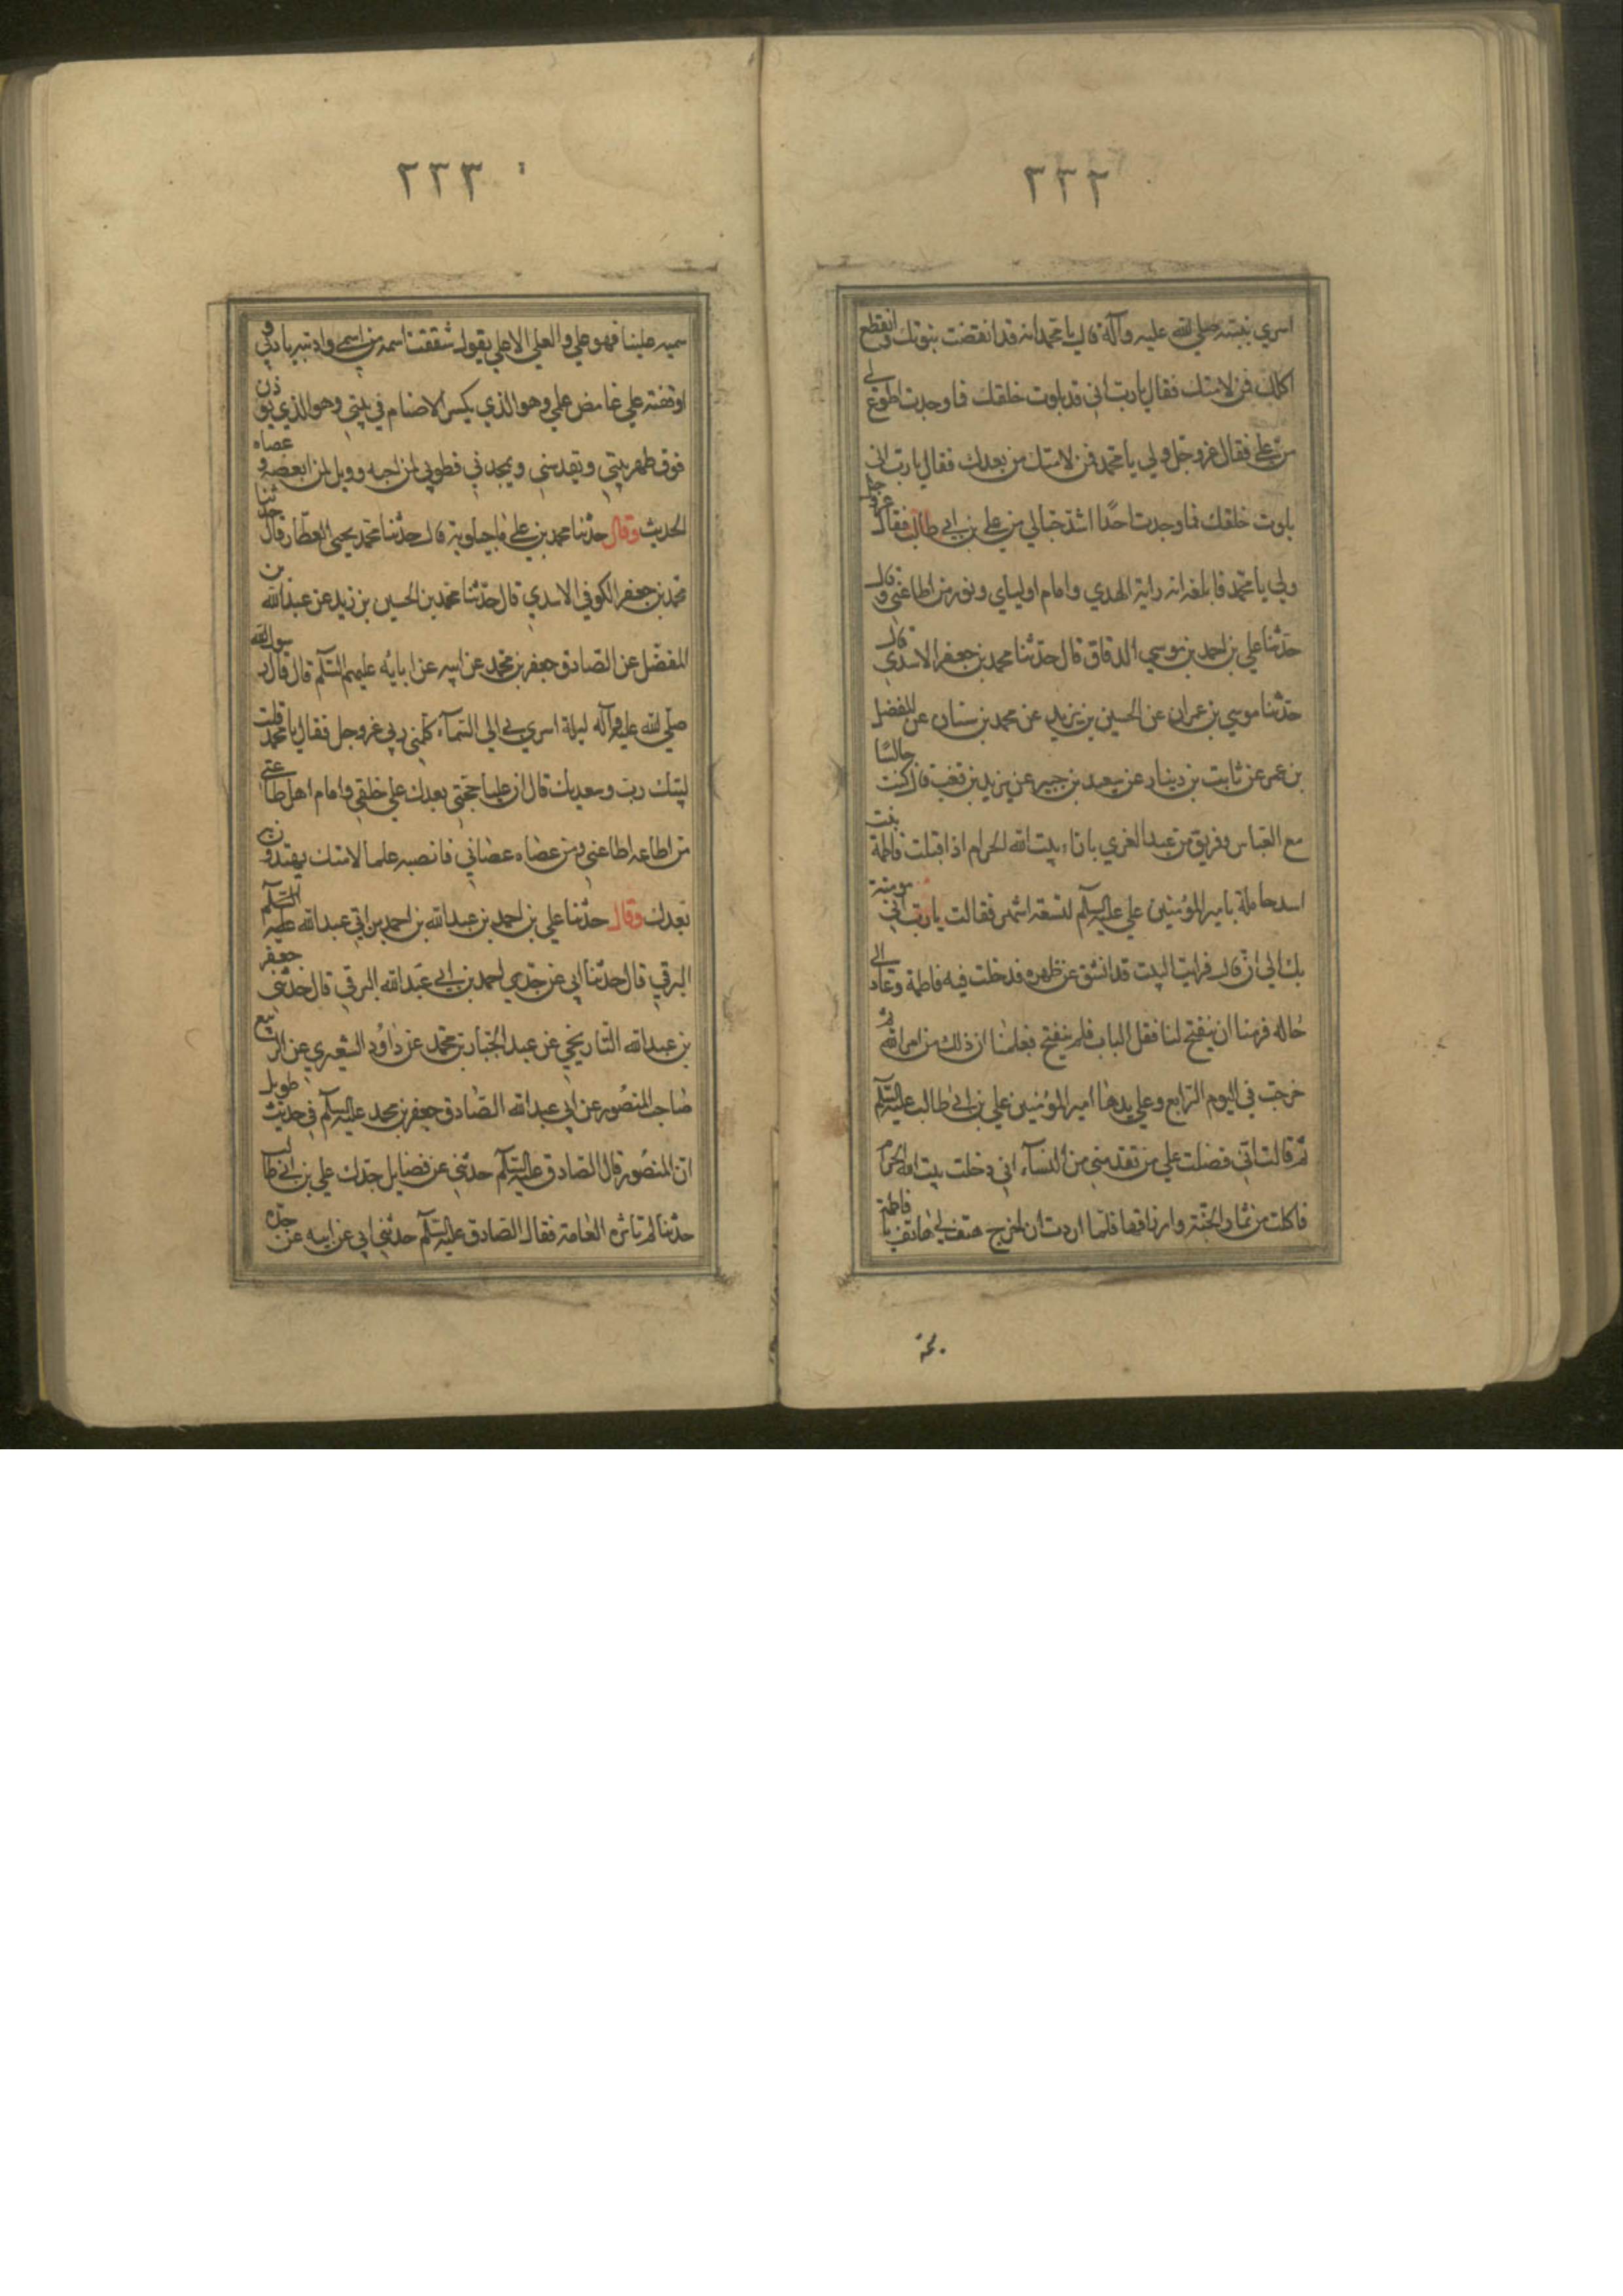 ٢٣٢
اسري بنبيه صلي الله عليه وآله قال يا محمد انه قد انقضت نبوتك وانقطع
اكلك فمن لامتك فقال يا رب اني قد بلوت خلقك فما وجدت اطوع لي
من علي فقال عز وجل ولي يا محمد فمن لامتك من بعدك فقال يا رب اني
بلوت خلقك فما وجدت احدا اشد حبا لي من علي بن ابي طالب فقال عز وجل
ولي يا محمد فابلغه انه راية الهدي وامام اوليائي ونور من اطاعني وقال
حدثنا علي بن احمد بن موسي الدقاق قال حدثنا محمد بن جعفر الاسدي قال
حدثنا موسي بن عمران عن الحسين بن يزيد عن محمد بن سنان عن المفضل
بن عمر عن ثابت بن دينار عن سعيد بن جبير عن يزيد بن قعنب قال كنت جالسًا
مع العباس وفريق من عبد العزي بازاء بيت الله الحرام اذ اقبلت فاطمة بنت
اسد حاملة بامير المؤمنين علي عليه السلم لتسعة اشهر فقالت يا رب اني مومنة
بك الي ان قال فرايت البيت قد انشق عن ظهره فدخلت فيه فاطمة وعاد الي
حاله فرمنا ان ينفتح لنا فقل الباب فلم ينفتح فعلمنا ان ذلك من امر الله ثم
خرجت في اليوم الرابع وعلي يدها امير المؤمنين علي بن ابي طالب عليه السلم
ثم قالت اني فضلت علي من تقدمني من النساء اني دخلت بيت الله الحرام
فاكلت من ثمار الجنة وارزاقها فلما اردت ان اخرج هتف لي هاتف يا فاطمة
٢٣٣
سميه عليا فهو علي والعلي الاعلي يقول شققت اسمه من اسمي وادبته بادبي و
اوقفته علي غامض علمي وهو الذي يكسر الاصنام في بيتي وهو الذي يوذن
فوق ظهر بيتي ويقدسني ويمجدني فطوبي لمن احبه وويل لمن ابغضه وعصاه
الحديث وقال حدثنا محمد بن علي ماجيلويه قال حدثنا محمد يحيي العطار قال حدثنا
محمد بن جعفر الكوفي الاسدي قال حدثنا محمد بن الحسين بن زيد عن عبد الله بن
المفضل عن الصادق جعفر بن محمد عن ابيه عن ابايه عليهم السلم قال قال رسول الله
صلي الله عليه وآله ليلة اسري بي الي السماء كلمني ربي عز وجل فقال يا محمد قلت
لبيك رب وسعديك قال ان عليا حجتي بعدك علي خلقي وامام اهل طاعتي
من اطاعه اطاعني ومن عصاه عصاني فانصبه علما لامتك يهتدون به
بعدك وقال حدثنا علي بن احمد بن عبد الله بن احمد بن ابي عبد الله عليه السلم
البرقي قال حدثنا ابي عن جدي احمد بن ابي عبد الله البرقي قال حدثني جعفر
بن عبد الله التاريخي عن عبد الجبار بن محمد عن داود الشعيري عن الربيع
صاحب المنصور عن ابي عبد الله الصادق جعفر بن محمد عليه السلم في حديث طويل
ان المنصور قال للصادق عليه السلم حدثني عن فضايل جدك علي بن ابي طالب
حدثنا لم تاثره العامة فقال الصادق عليه السلم حدثني ابي عن ابيه عن جده